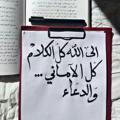 الى الله كل الكلام
كل الأماني ...
والدعاء